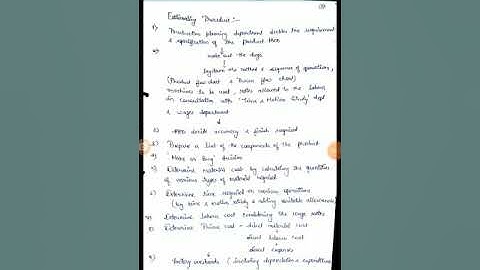 Estimating Procedure :-
1) Production planning department decides the requirement
& specification of the product
2) make out the dwgs
Layout the method & sequence of operations,
(Product flow chart & Process flow chart)
machines to be used, rates allowed to the labour
in consultation with 'Time & Motion Study' dept
& wages department
decide accuracy & finish required
Prepare a list of the components of the product
Make or buy decision
Determine material cost by calculating the quantities
of various types of material required
Determine time required on various operations
(by time & motion study & adding suitable allowances)
Determine labour cost considering the wage rates
Determine Prime cost = direct material cost
direct labour cost
direct expenses
Factory overheads (including depreciation & expenditure